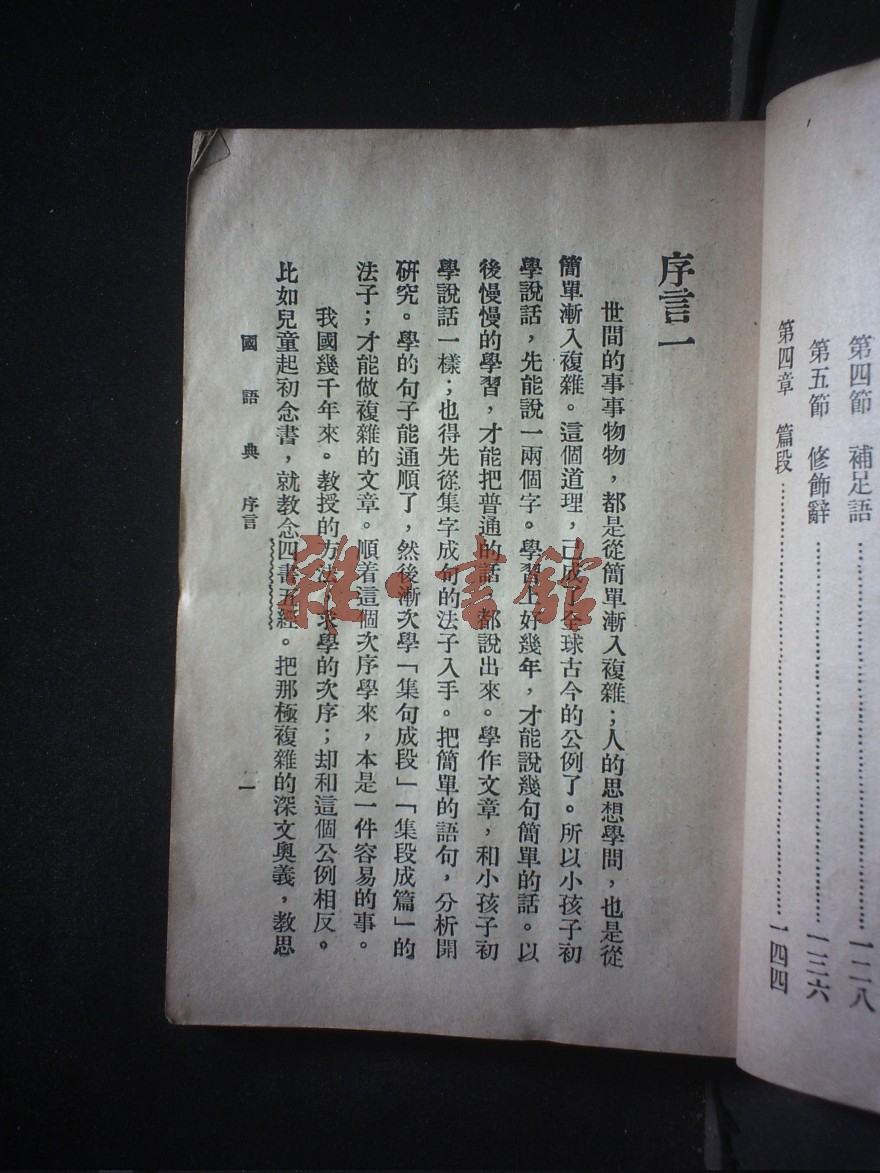 第四節　補足語……一二八
第五節　修飾辭……一三六
第四章　篇段……一四四
序言一
世間的事事物物，都是從簡單漸入複雜；人的思想學問，也是從
簡單漸入複雜。這個道理，已成了全球古今的公例了。所以小孩子初
學說話，先能說一兩個字。學習上好幾年，才能說幾句簡單的話。以
後慢慢的學習，才能把普通的話，都說出來。學作文章，和小孩子初
學說話一樣；也得先從集字成句的法子入手。把簡單的語句，分析開
研究。學的句子能通順了，然後漸次學「集句成段」「集段成篇」的
法子；才能做複雜的文章。順着這個次序學來，本是一件容易的事。
我國幾千年來。教授的方法，求學的次序；却和這個公例相反。
比如兒童起初念書，就教念四書五經。把那極複雜的深文奧義，教思
國語典　序言
一
雜·書館